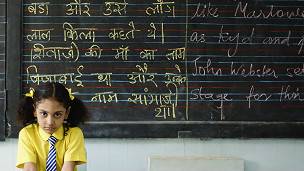 बडा और उसे लोग
लाल किला कहते थे।
शिवाजी की माँ का नाम
जिजाबाई था और
नाम
था।
like
as Kyd and
John Webster set
stage for thi